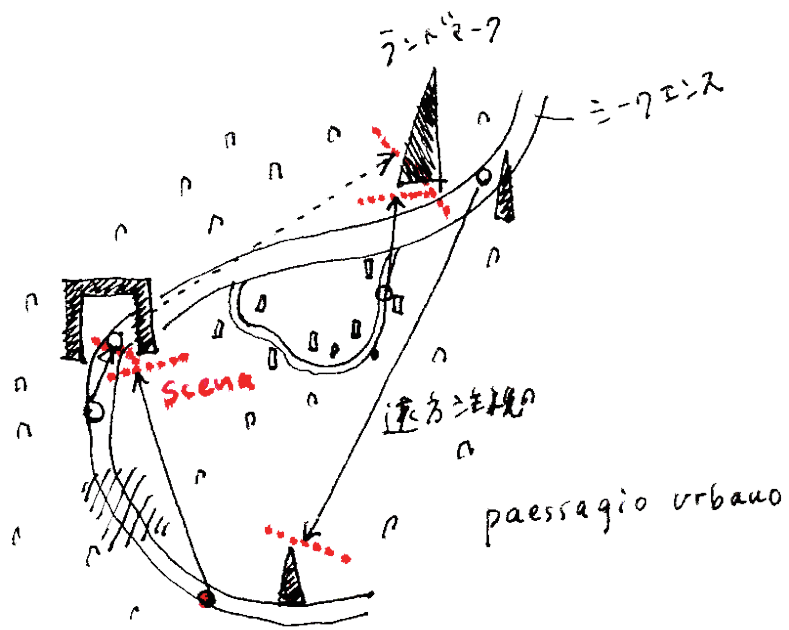 ランドマーク
シークエンス
scena
遠方注視
paessagio urbano